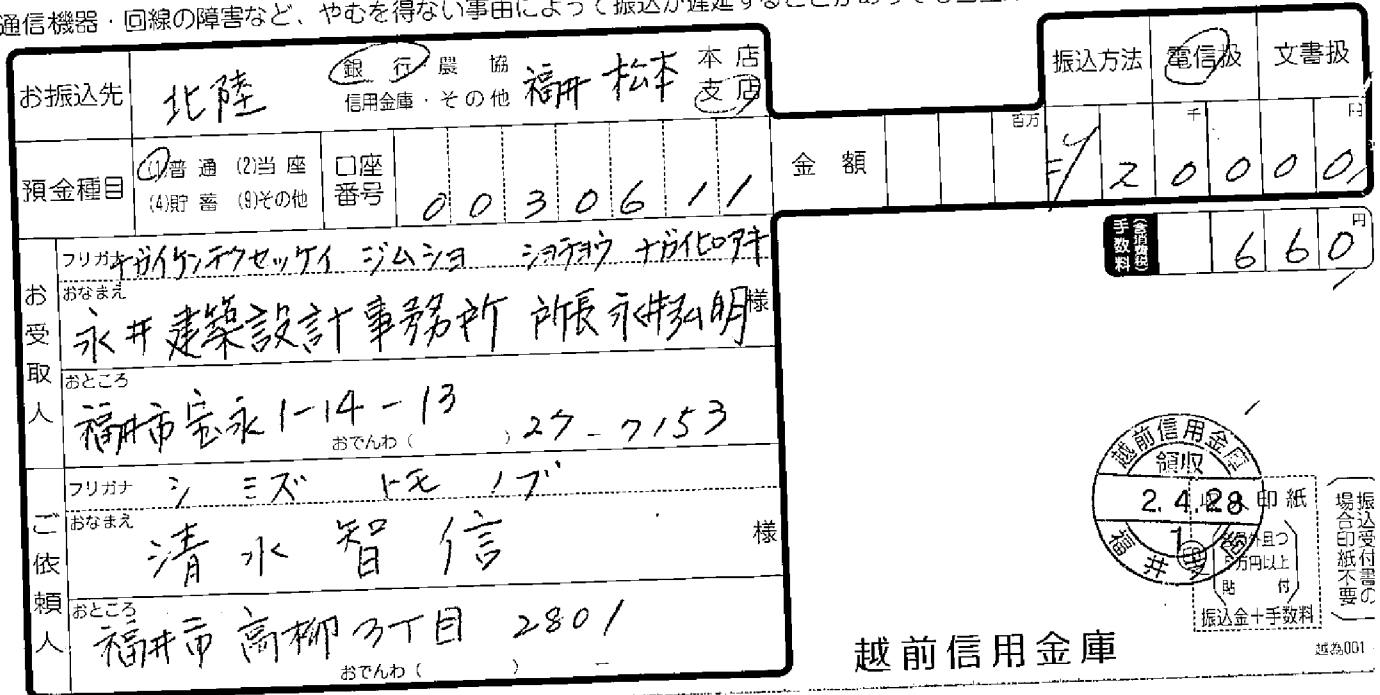 通信機器・回線の障害など、やむを得ない事由によって振込が遅延することがあっても
お振込先 北陸 銀行 農協 信用金庫・その他 福井 松本 本店 支店
振込方法 電信扱 文書扱
預金種目 (1)普通 (2)当座 (4)貯蓄 (9)その他 口座番号 0030611
金額 百万 千 円 ¥20000
手数料 (含消費税) 660 円
お受取人
フリガナ ナガイケンチクセッケイ ジムショ ショチョウ ナガイヒロアキ
おなまえ 永井建築設計事務所 所長 永井弘明 様
おところ 福井市宝永1-14-13
おでんわ( ) 27-7153
ご依頼人
フリガナ シミズ トモノブ
おなまえ 清水智信 様
おところ 福井市高柳3丁目 2801
おでんわ( ) -
越前信用金庫
領収
2.4.28
1
福井
収入印紙
5万円以上
貼付
振込金+手数料
振込受付書の
場合印紙不要
越前信用金庫
越為001